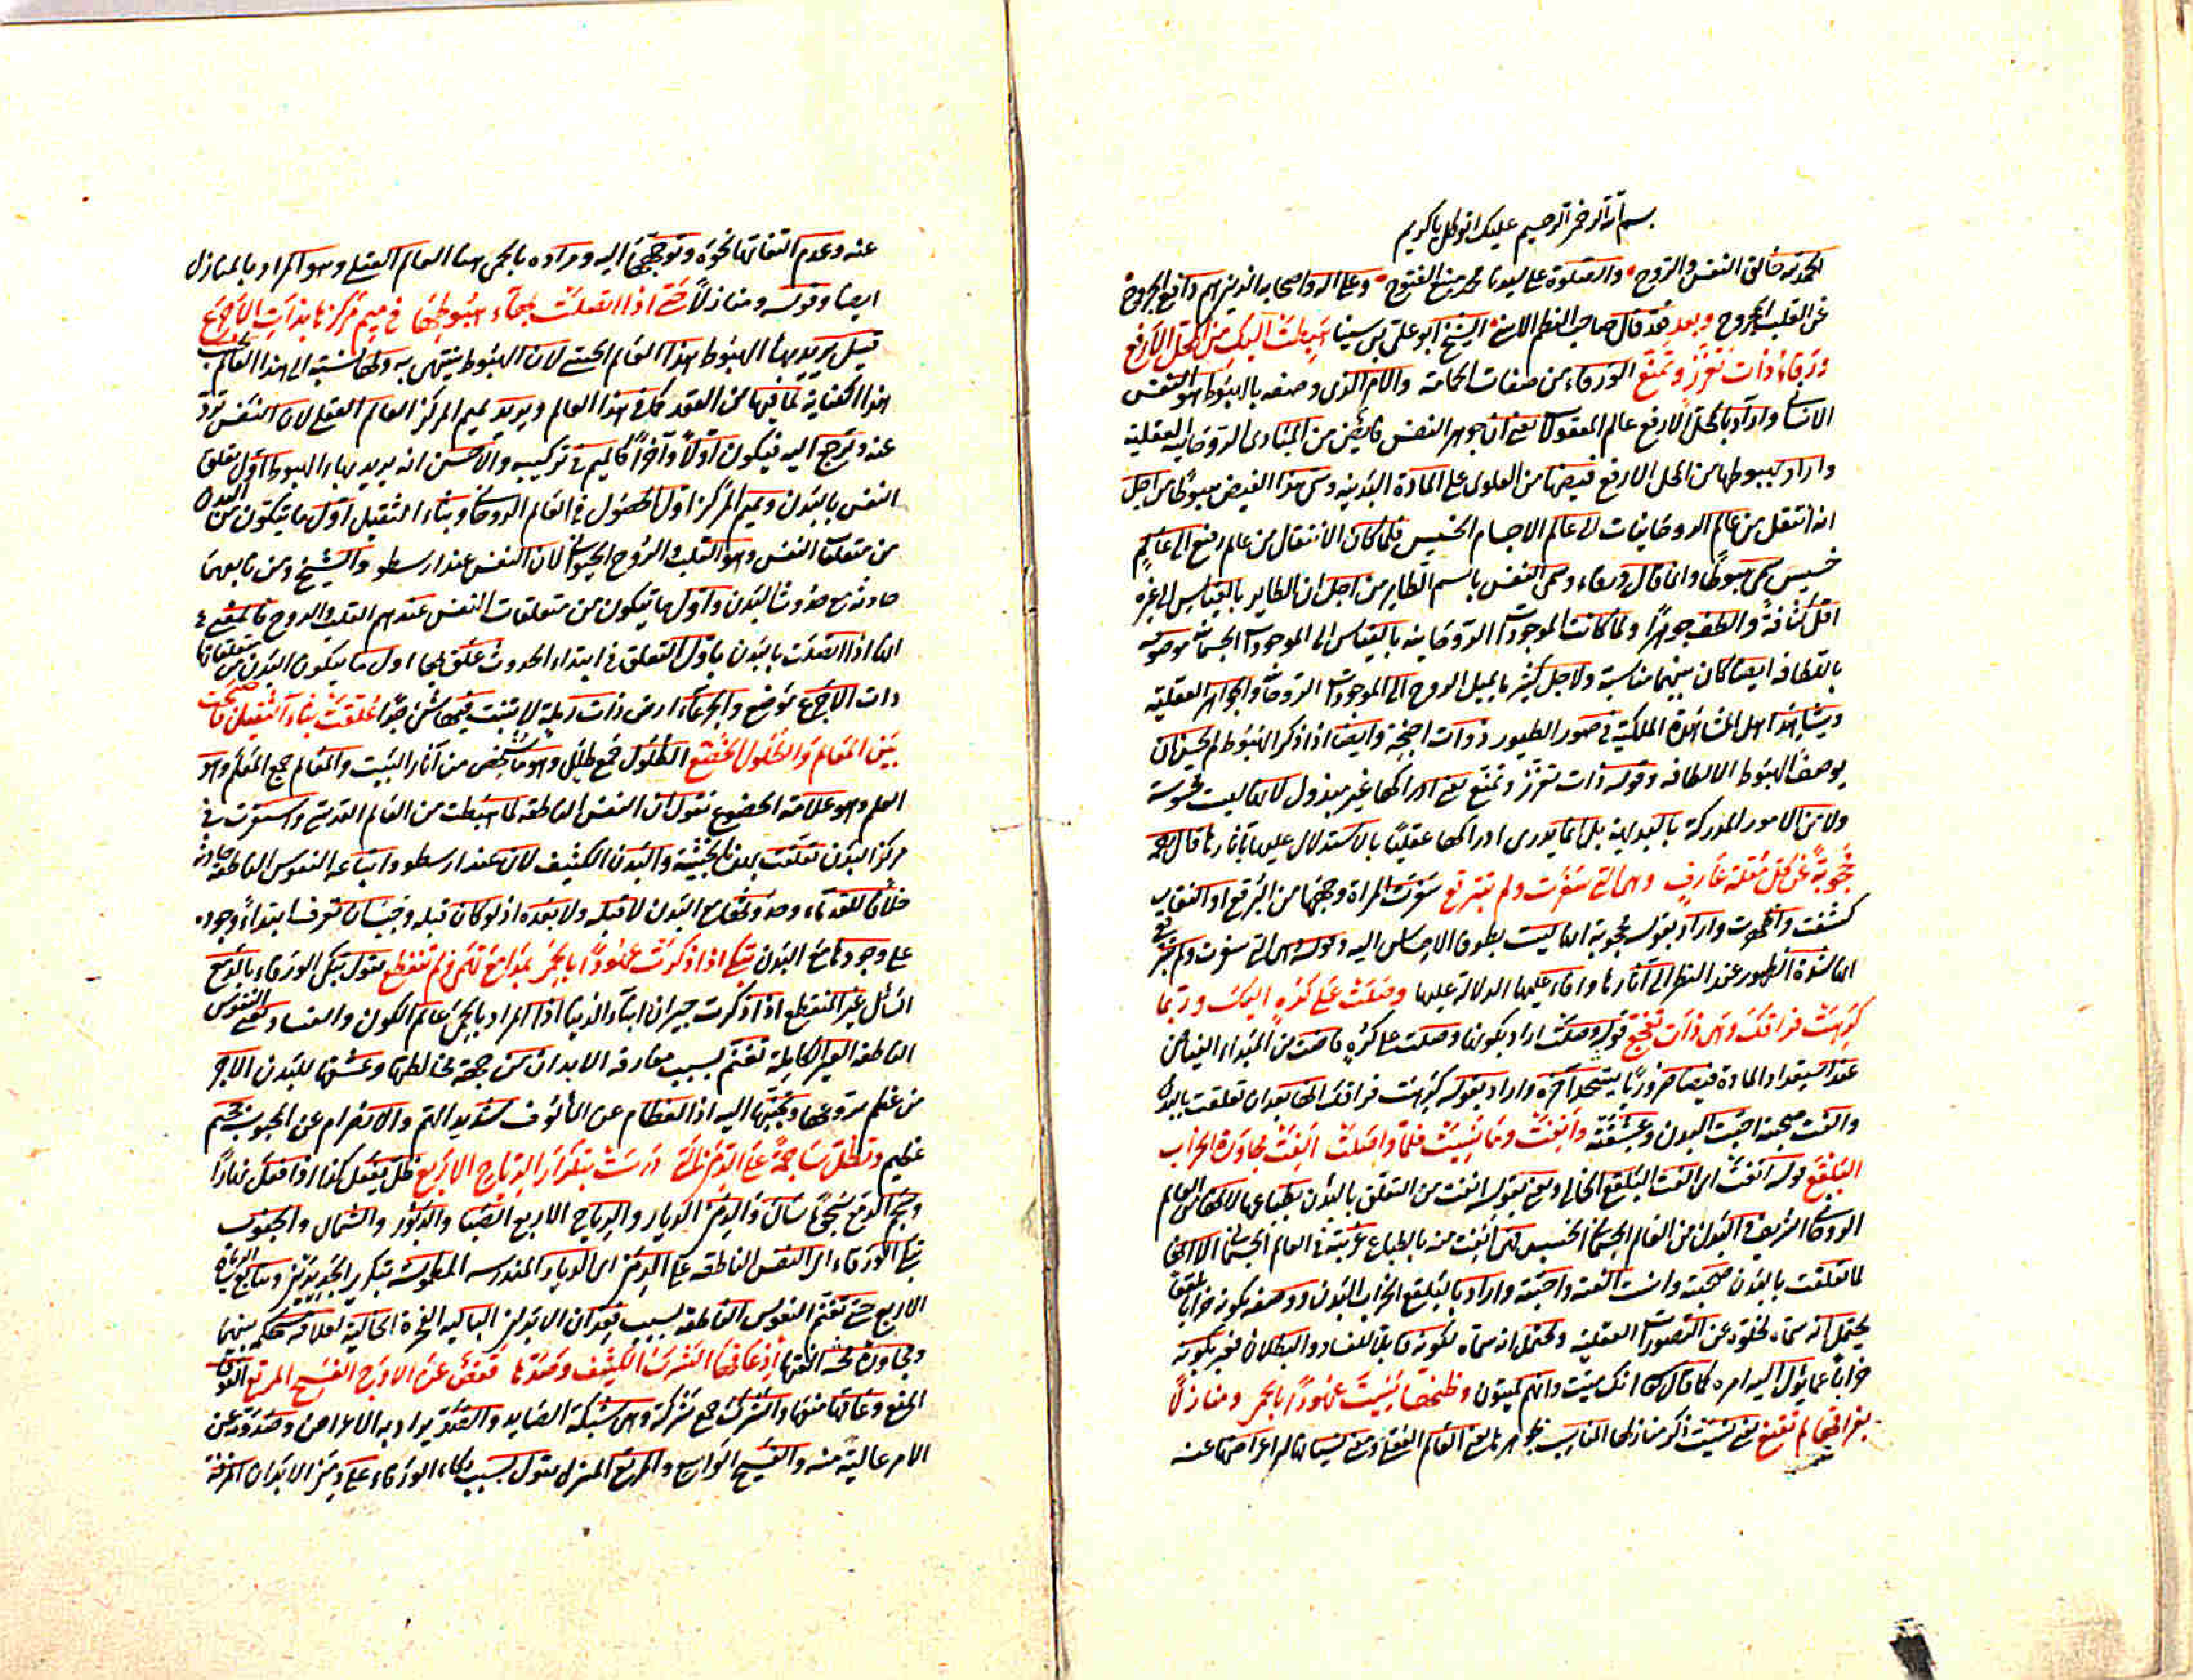 بسم الله الرحمن الرحيم عليك اتوكل يا كريم
الحمد لله خالق النفس والروح والصلوة على سيدنا محمد منبع الفتوح وعلى اله واصحابه الذينهم دافع الجروح
عن القلب المجروح وبعد فقد قال صاحب النظم الاسنى الشيخ ابو على بن سينا هبطت اليك من المحل الارفع
ورقاء ذات تعزز وتمنع الورقاء من صفات الحمامة والامر الذى وصفه بالهبوط هو النفس
الانسانى واراد بالمحل الارفع عالم المعقول يعنى ان جوهر النفس فايض من المبادى الروحانيه العقلية
واراد بهبوطها من المحل الارفع فيضها من العلوى على المادة البدنيه وسمى هذا الفيض هبوطا من اجل
انه انتقل من عالم الروحانيات الى عالم الاجسام الخسيس فلما كان الانتقال من عالم رفيع الى عالم
خسيس سمى هبوطا وانما قال ورقاء وسمى النفس باسم الطاير من اجل ان الطاير بالقياس الى غيره
اقل كثافة والطف جوهرا ولما كانت الموجودات الروحانيه بالقياس الى الموجودات الجسمانية موصوفة
باللطافه ايضا كان بينهما مناسبة ولاجل كثير ما يميل الروح الى الموجودات الروحانية والجواهر العقلية
ويشاهد اهل المشاهدة الملكية فى صور الطيور ذوات اجنحة وايضا اذا ذكر الهبوط لم يحسن ان
يوصف الهبوط الا لطافه وقوله ذات تعزز وتمنع يعنى ادراكها غير مبذول لانها ليست محسوسة
ولا من الامور المدركة بالبديهة بل انما يدرى ادراكها عقليا بالاستدلال عليها باثارها قال رحمه
محجوبة عن كل مقلة عارف وهى التى سفرت ولم تتبرقع سفرت المراة وجهها من البرقع او النقاب
كشفت واظهرت واراد بقوله محجوبة انها ليست بطرق الاحساس اليه وقوله وهى التى سفرت ولم تتبرقع
انها شدة الظهور عند النظر الى آثارها واقامه عليها الدلالة عليها وصلت على كره اليك وربما
كرهت فراقك وهى ذات تفجع قوله وصلت اراد بكونها وصلت على كره فاضت من المبداء الفياض
عند استعداد المادة فيضا ضروريا واراد بقوله كرهت فراقك انها بعد ان تعلقت بالبدن
والفت صحبته احبت البدن وعشقته وانفت وما نسيت فلما واصلت الفت مجاورة الخراب
البلقع قوله انفت اى الفت البلقع الخالى ويعنى بقوله انفت من التعلق بالبدن بطباعها لانها من العالم
الروحانى الشريف والبدن من العالم الجسمانى الخسيس لكن انفت منه بالطباع غريبة فى العالم الجسمانى الا انها
لما تعلقت بالبدن صحبته وانست الفته واحبته واراد بالبلقع الخراب البدن ووصفه بكونه خرابا بلقعا
يحتمل انه سماه لخلوه عن التصورات العقلية ويحتمل انه سماه لكونه قابلا للفساد والبطلان فعبر بكونه
خرابا عما يؤل اليه امره كما قال تعالى انك ميت وانهم ميتون واظنها نسيت عهودا بالحمى ومنازلا
بفراقها لم تقنع يعنى نسيت ذكر منازلها المناسب بجوهرها يعنى العالم العقلى ومعنى نسيانها لها اعراضها عنه
عنه وعدم التفاتها نحوه وتوجهها اليه ومراده بالحمى هنا العالم العقلى وهو المراد بالمنازل
ايضا وقوله ومنازلا حتى اذا اتصلت بهاء هبوطها فى ميم مركزها بذات الاجرع
قيل يريد بهاء الهبوط هذا العالم الحسى لان الهبوط ينتهى به ولها نسبة الى هذا العالم
هذا الكناية لما فيها من العقد كما فى هذا العالم ويريد بميم المركز العالم العقلى لان النفس ترد
عنه وترجع اليه فيكون اولا وآخرا كالميم فى تركيبه والاحسن انه يريد بهاء الهبوط اول تعلق
النفس بالبدن وبميم المركز اول الحصول فى العالم الروحانى وبثاء الثقيل اول ما يتكون من البدن
من متعلقات النفس وهو القلب والروح الحيوانى لان النفس عند ارسطو والشيخ ومن تابعهما
حادثه مع حدوث البدن واول ما يتكون من متعلقات النفس عندهم القلب والروح فالمعنى
انها اذا اتصلت بالبدن باول التعلق فى ابتداء الحدوث علق بها اول ما يتكون البدن من متعلقاتها
ذات الاجرع موضع والجرعاء ارض ذات رملة لا تنبت فيها شئ جدا علقت بثاء الثقيل فاصبحت
بين المعالم والطلول الخضع الطلول جمع طلل وهو ما شخص من آثار البيت والمعالم جمع المعلم وهو
العلم وهو علامة الخضوع نقول ان النفس الناطقه لما هبطت من العالم القدسى واستقرت فى
مركز البدن تعلقت بهذه الجثة والبدن الكثيف لان عند ارسطو واتباعه النفوس الناطقه حادثة
خلافا للقدماء وحدوثها مع البدن لا قبله ولا بعده اذ لو كان قبله وجب ان تعرف ابتداء وجوده
على وجودها مع البدن تبكى اذا ذكرت عهودا بالحمى بمدامع تهمى ولم تتقطع يقول تبكى الورقاء بالدمع
السائل غير المنقطع اذا ذكرت جيران ابناء الدنيا اذا المراد بالحمى عالم الكون والفساد يعنى النفوس
الناطقه الغير الكاملة تغتم بسبب مفارقة الابدان من جهة مخالطها وعشقها للبدن الاجر
من غلم تروعها وتحتها اليه اذ الفطام عن المألوف شديد الهم والانصرام عن المحبوب خصم
عظيم وتظل ساجمة على الدمن التى درست بتكرار الرياح الاربع ظل يفعل كذا اذا فعل نهارا
وسجم الدمع سجوما سال والدمن الديار والرياح الاربع الصبا والدبور والشمال والجنوب
تبكى الورقاء اى النفس الناطقه على الدمن اى الديار المندرسه المطموسة بتكرير الجديدين وتتابع الرياح
الاربع حتى تغتم النفوس الناطقه بسبب فقدان الابدان الباليه النخرة الخالية لعلاقة مستحكمه بينهما
ومجاورة محبة الفتها اذ عاقها الشرك الكثيف وصدها قفص عن الاوج الفسيح المربع العوق
المنع وعاقها منعها والشرك جمع شركة وهى شبكة الصايد والصد يراد به الاعراض وصدوده عن
الامر عاليته منه والفسيح الواسع والمربع المنزل يقول بسبب بكاء الورقاء على دمن الابدان المزقة